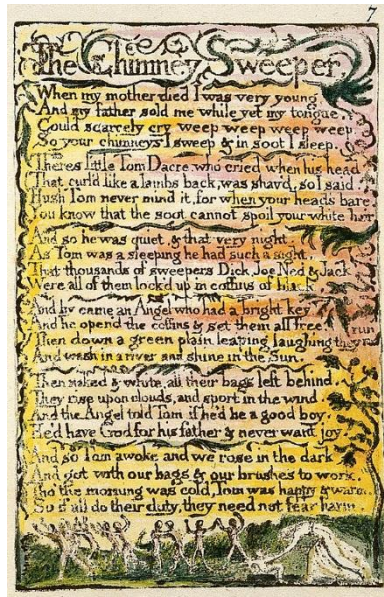 7
The Chimney Sweeper
When my mother died I was very young,
And my father sold me while yet my tongue,
Could scarcely cry weep weep weep weep.
So your chimneys I sweep & in soot I sleep.
Theres little Tom Dacre, who cried when his head
That curl'd like a lambs back, was shav'd, so I said
Hush Tom never mind it, for when your heads bare
You know that the soot cannot spoil your white hair
And so he was quiet, & that very night,
As Tom was a sleeping he had such a sight,
That thousands of sweepers Dick, Joe Ned & Jack
Were all of them lock'd up in coffins of black
And by came an Angel who had a bright key
And he open'd the coffins & set them all free.
Then down a green plain leaping laughing they run
And wash in a river and shine in the Sun.
Then naked & white, all their bags left behind.
They rise upon clouds, and sport in the wind
And the Angel told Tom if he'd be a good boy,
He'd have God for his father & never want joy
And so Tom awoke and we rose in the dark
And got with our bags & our brushes to work.
Tho' the morning was cold, Tom was happy & warm.
So if all do their duty, they need not fear harm.